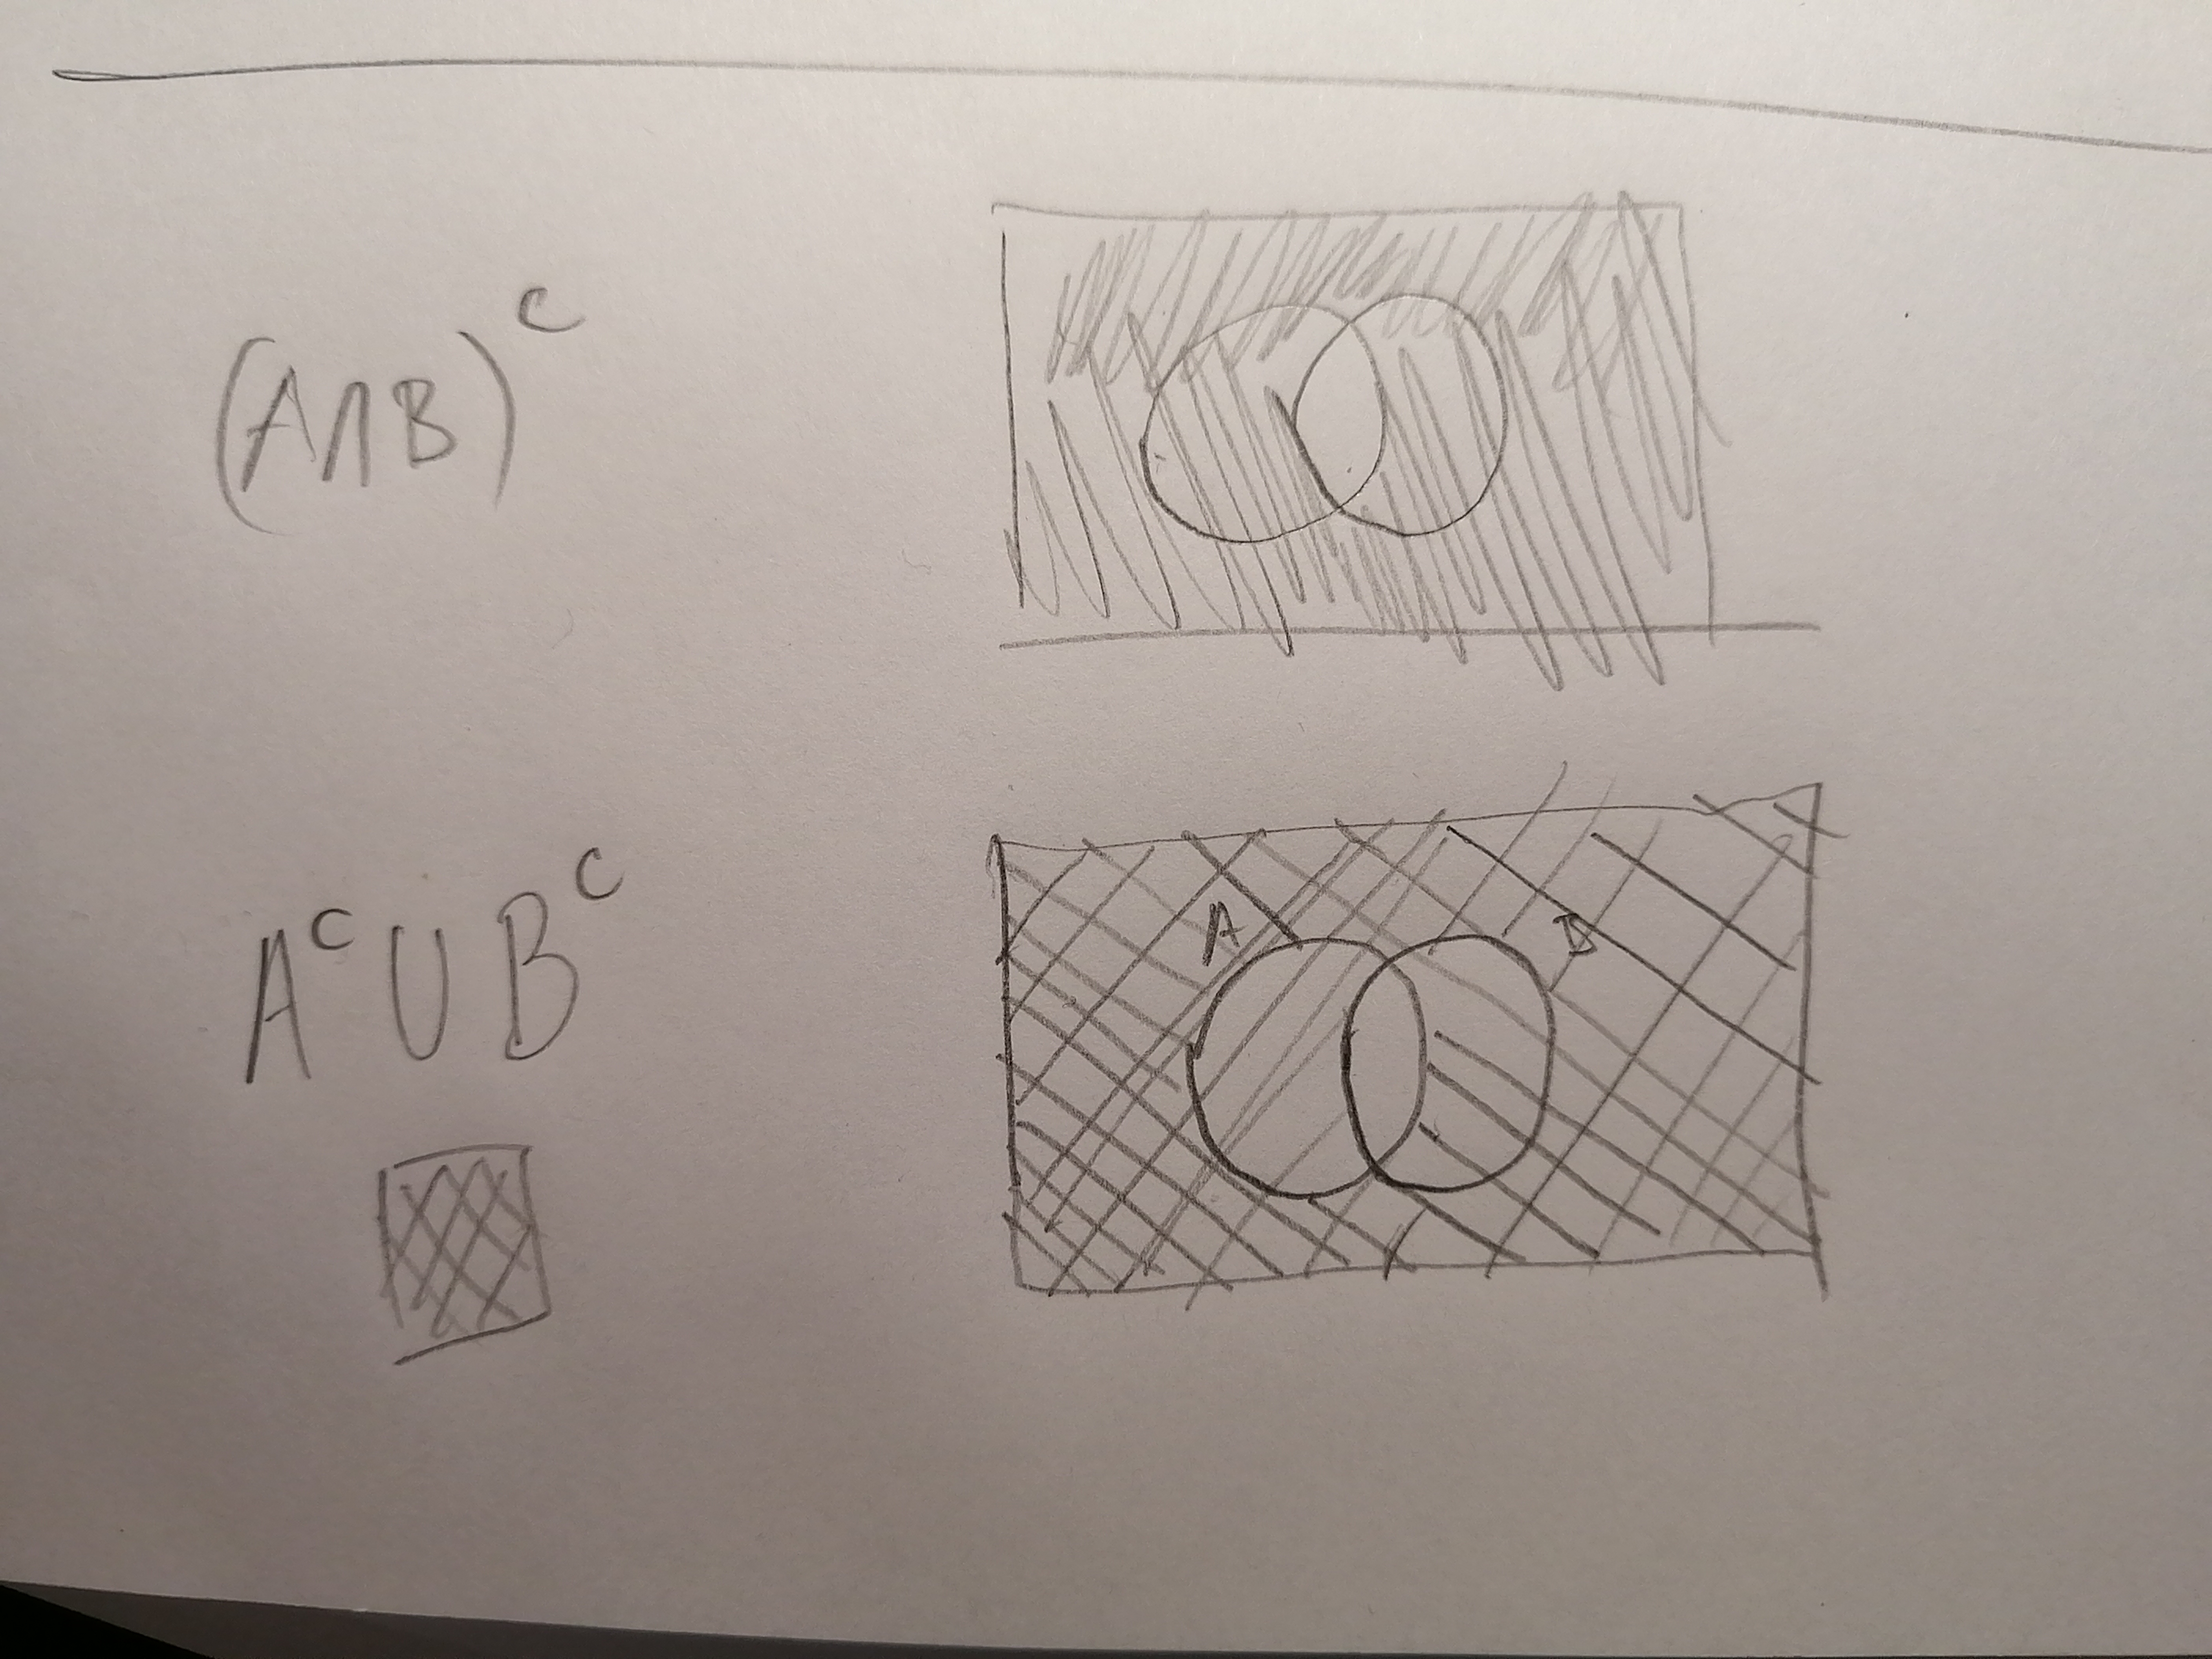 (A∩B)ᶜ
Aᶜ∪Bᶜ
A B